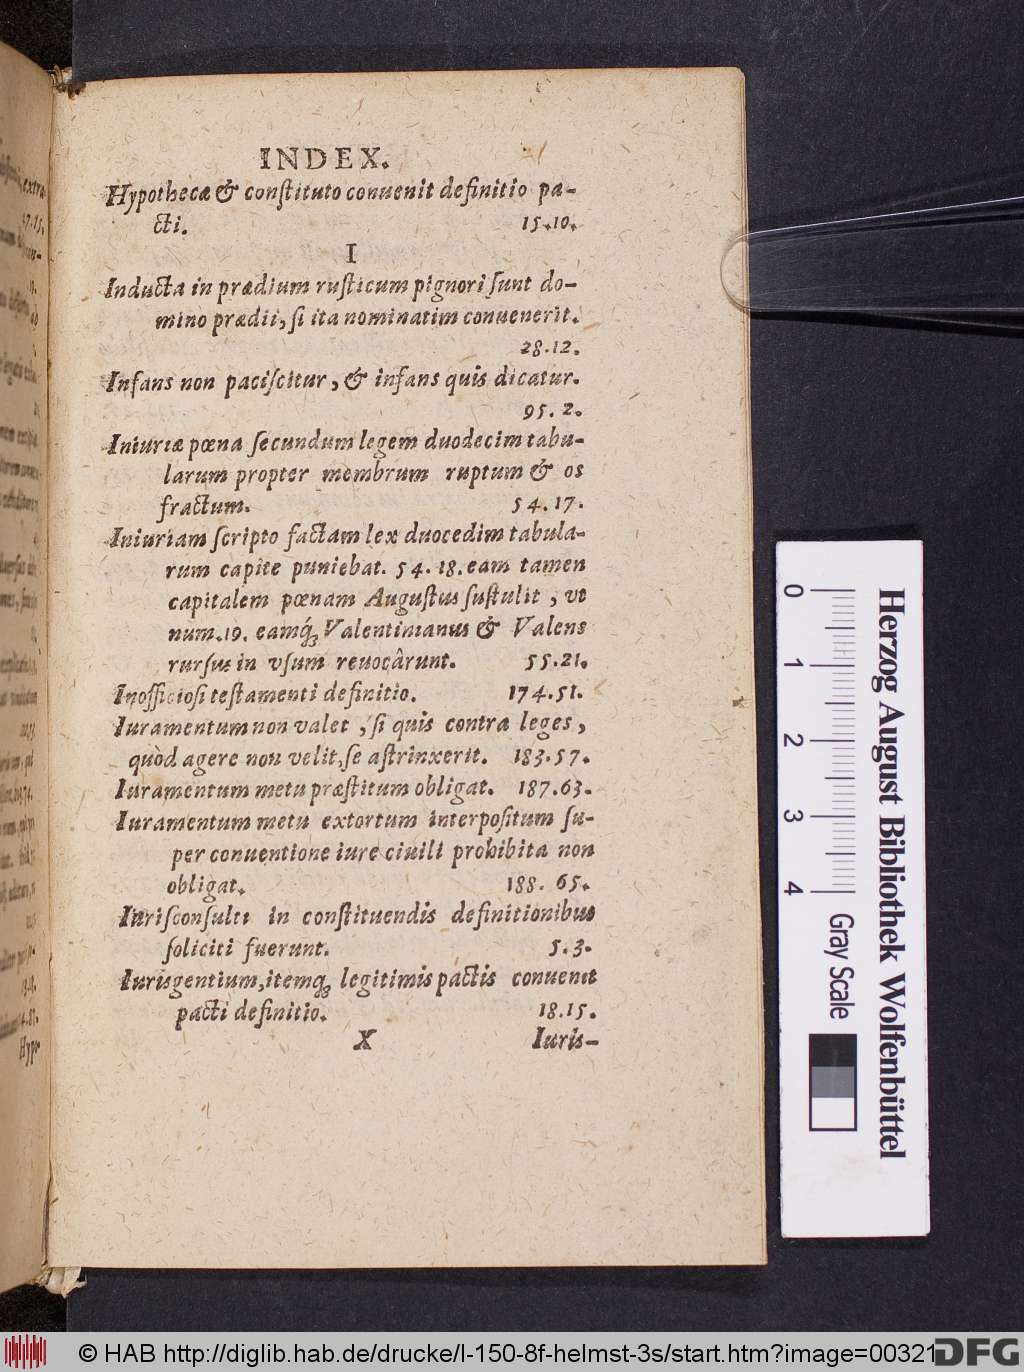 INDEX.
Hypothecæ & conſtituto conuenit definitio pa-
cti. 15.10.
I
Inducta in prædium ruſticum pignori ſunt do-
mino prædii, ſi ita nominatim conuenerit.
28.12.
Infans non paciſcitur, & infans quis dicatur.
95.2.
Iniuriæ pœna ſecundum legem duodecim tabu-
larum propter membrum ruptum & os
fractum. 54.17.
Iniuriam ſcripto factam lex duocedim tabula-
rum capite puniebat. 54.18. eam tamen
capitalem pœnam Auguſtus ſuſtulit, vt
num.19. eamq́; Valentinianus & Valens
rurſus in vſum reuocârunt. 55.21.
Inofficioſi teſtamenti definitio. 174.51.
Iuramentum non valet, ſi quis contra leges,
quòd agere non velit, ſe aſtrinxerit. 183.57.
Iuramentum metu præſtitum obligat. 187.63.
Iuramentum metu extortum interpoſitum ſu-
per conuentione iure ciuili prohibita non
obligat. 188.65.
Iuriſconſulti in conſtituendis definitionibus
ſoliciti fuerunt. 5.3.
Iurisgentium, itemq; legitimis pactis conuenit
pacti definitio. 18.15.
X Iuris-
Hypo
0 1 2 3 4
Gray Scale
Herzog August Bibliothek Wolfenbüttel
© HAB http://diglib.hab.de/drucke/l-150-8f-helmst-3s/start.htm?image=00321
DFG